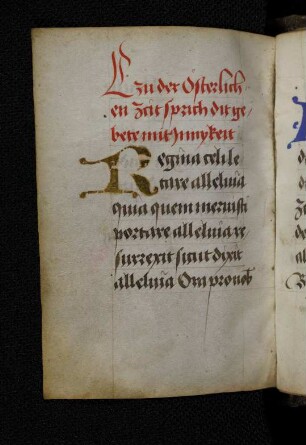 Czu der Osterlich
en Zeit sprich dit ge/
bete mit Innykeit
Regina celi le
tare alleluia
quia quem meruisti
portare alleluia re
surrexit sicut dixit
alleluia Ora pro nob